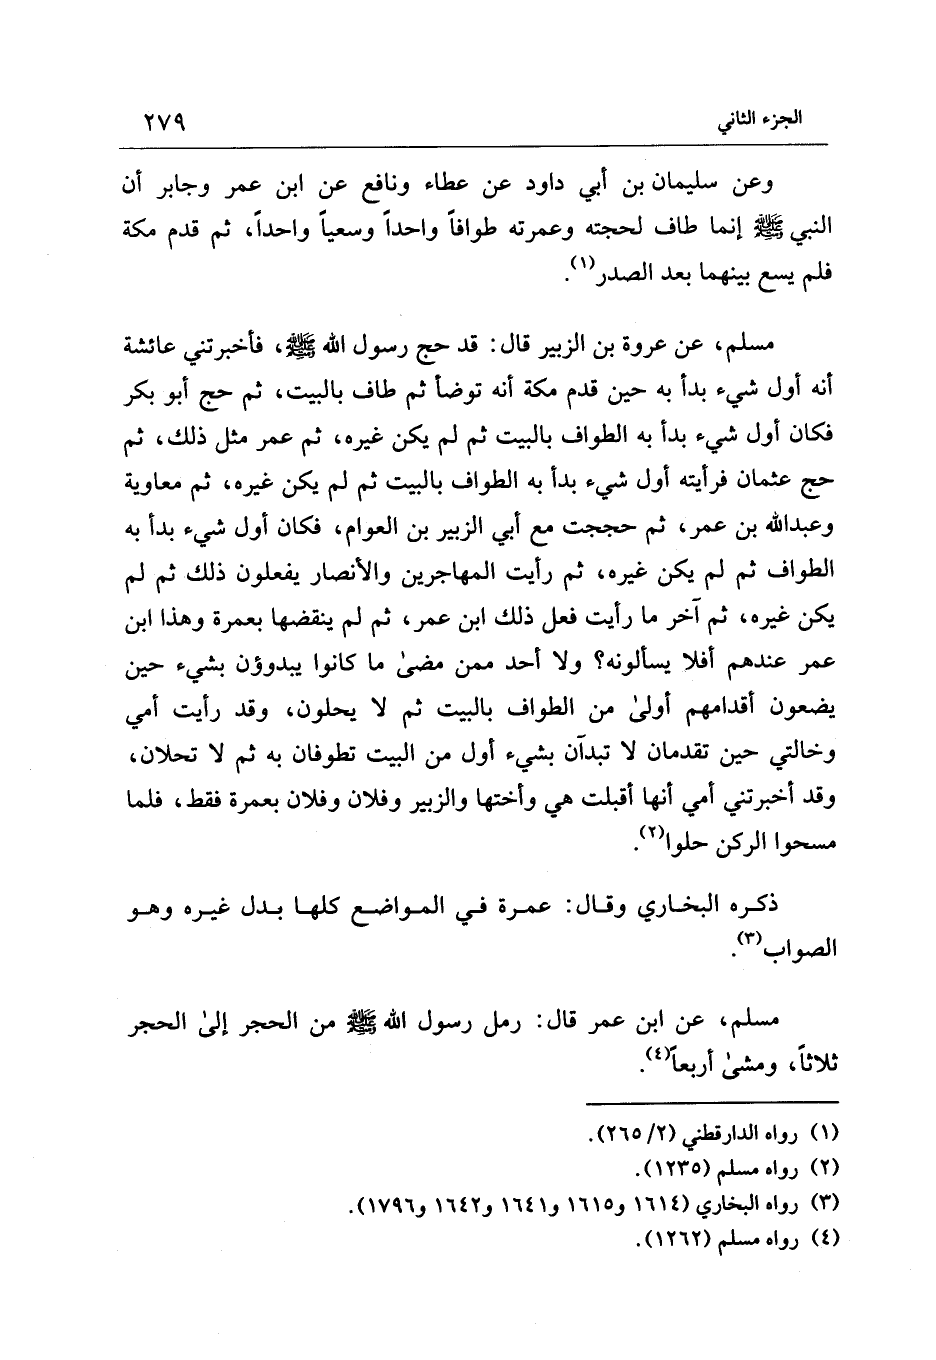 الجزء الثاني ٢٧٩
وعن سليمان بن أبي داود عن عطاء ونافع عن ابن عمر وجابر أن
النبي ﷺ إنما طاف لحجته وعمرته طوافاً واحداً وسعياً واحداً، ثم قدم مكة
فلم يسع بينهما بعد الصدر(١).
مسلم، عن عروة بن الزبير قال: قد حج رسول الله ﷺ، فأخبرتني عائشة
أنه أول شيء بدأ به حين قدم مكة أنه توضأ ثم طاف بالبيت، ثم حج أبو بكر
فكان أول شيء بدأ به الطواف بالبيت ثم لم يكن غيره، ثم عمر مثل ذلك، ثم
حج عثمان فرأيته أول شيء بدأ به الطواف بالبيت ثم لم يكن غيره، ثم معاوية
وعبدالله بن عمر، ثم حججت مع أبي الزبير بن العوام، فكان أول شيء بدأ به
الطواف ثم لم يكن غيره، ثم رأيت المهاجرين والأنصار يفعلون ذلك ثم لم
يكن غيره، ثم آخر ما رأيت فعل ذلك ابن عمر، ثم لم ينقضها بعمرة وهذا ابن
عمر عندهم أفلا يسألونه؟ ولا أحد ممن مضىٰ ما كانوا يبدوؤن بشيء حين
يضعون أقدامهم أولىٰ من الطواف بالبيت ثم لا يحلون، وقد رأيت أمي
وخالتي حين تقدمان لا تبدآن بشيء أول من البيت تطوفان به ثم لا تحلان،
وقد أخبرتني أمي أنها أقبلت هي وأختها والزبير وفلان وفلان بعمرة فقط، فلما
مسحوا الركن حلوا(٢).
ذكره البخاري وقال: عمرة في المواضع كلها بدل غيره وهو
الصواب(٣).
مسلم، عن ابن عمر قال: رمل رسول الله ﷺ من الحجر إلىٰ الحجر
ثلاثاً، ومشىٰ أربعاً(٤).
(١) رواه الدارقطني (٢/ ٢٦٥).
(٢) رواه مسلم (١٢٣٥).
(٣) رواه البخاري (١٦١٤ و١٦١٥ و١٦٤١ و١٦٤٢ و١٧٩٦).
(٤) رواه مسلم (١٢٦٢).